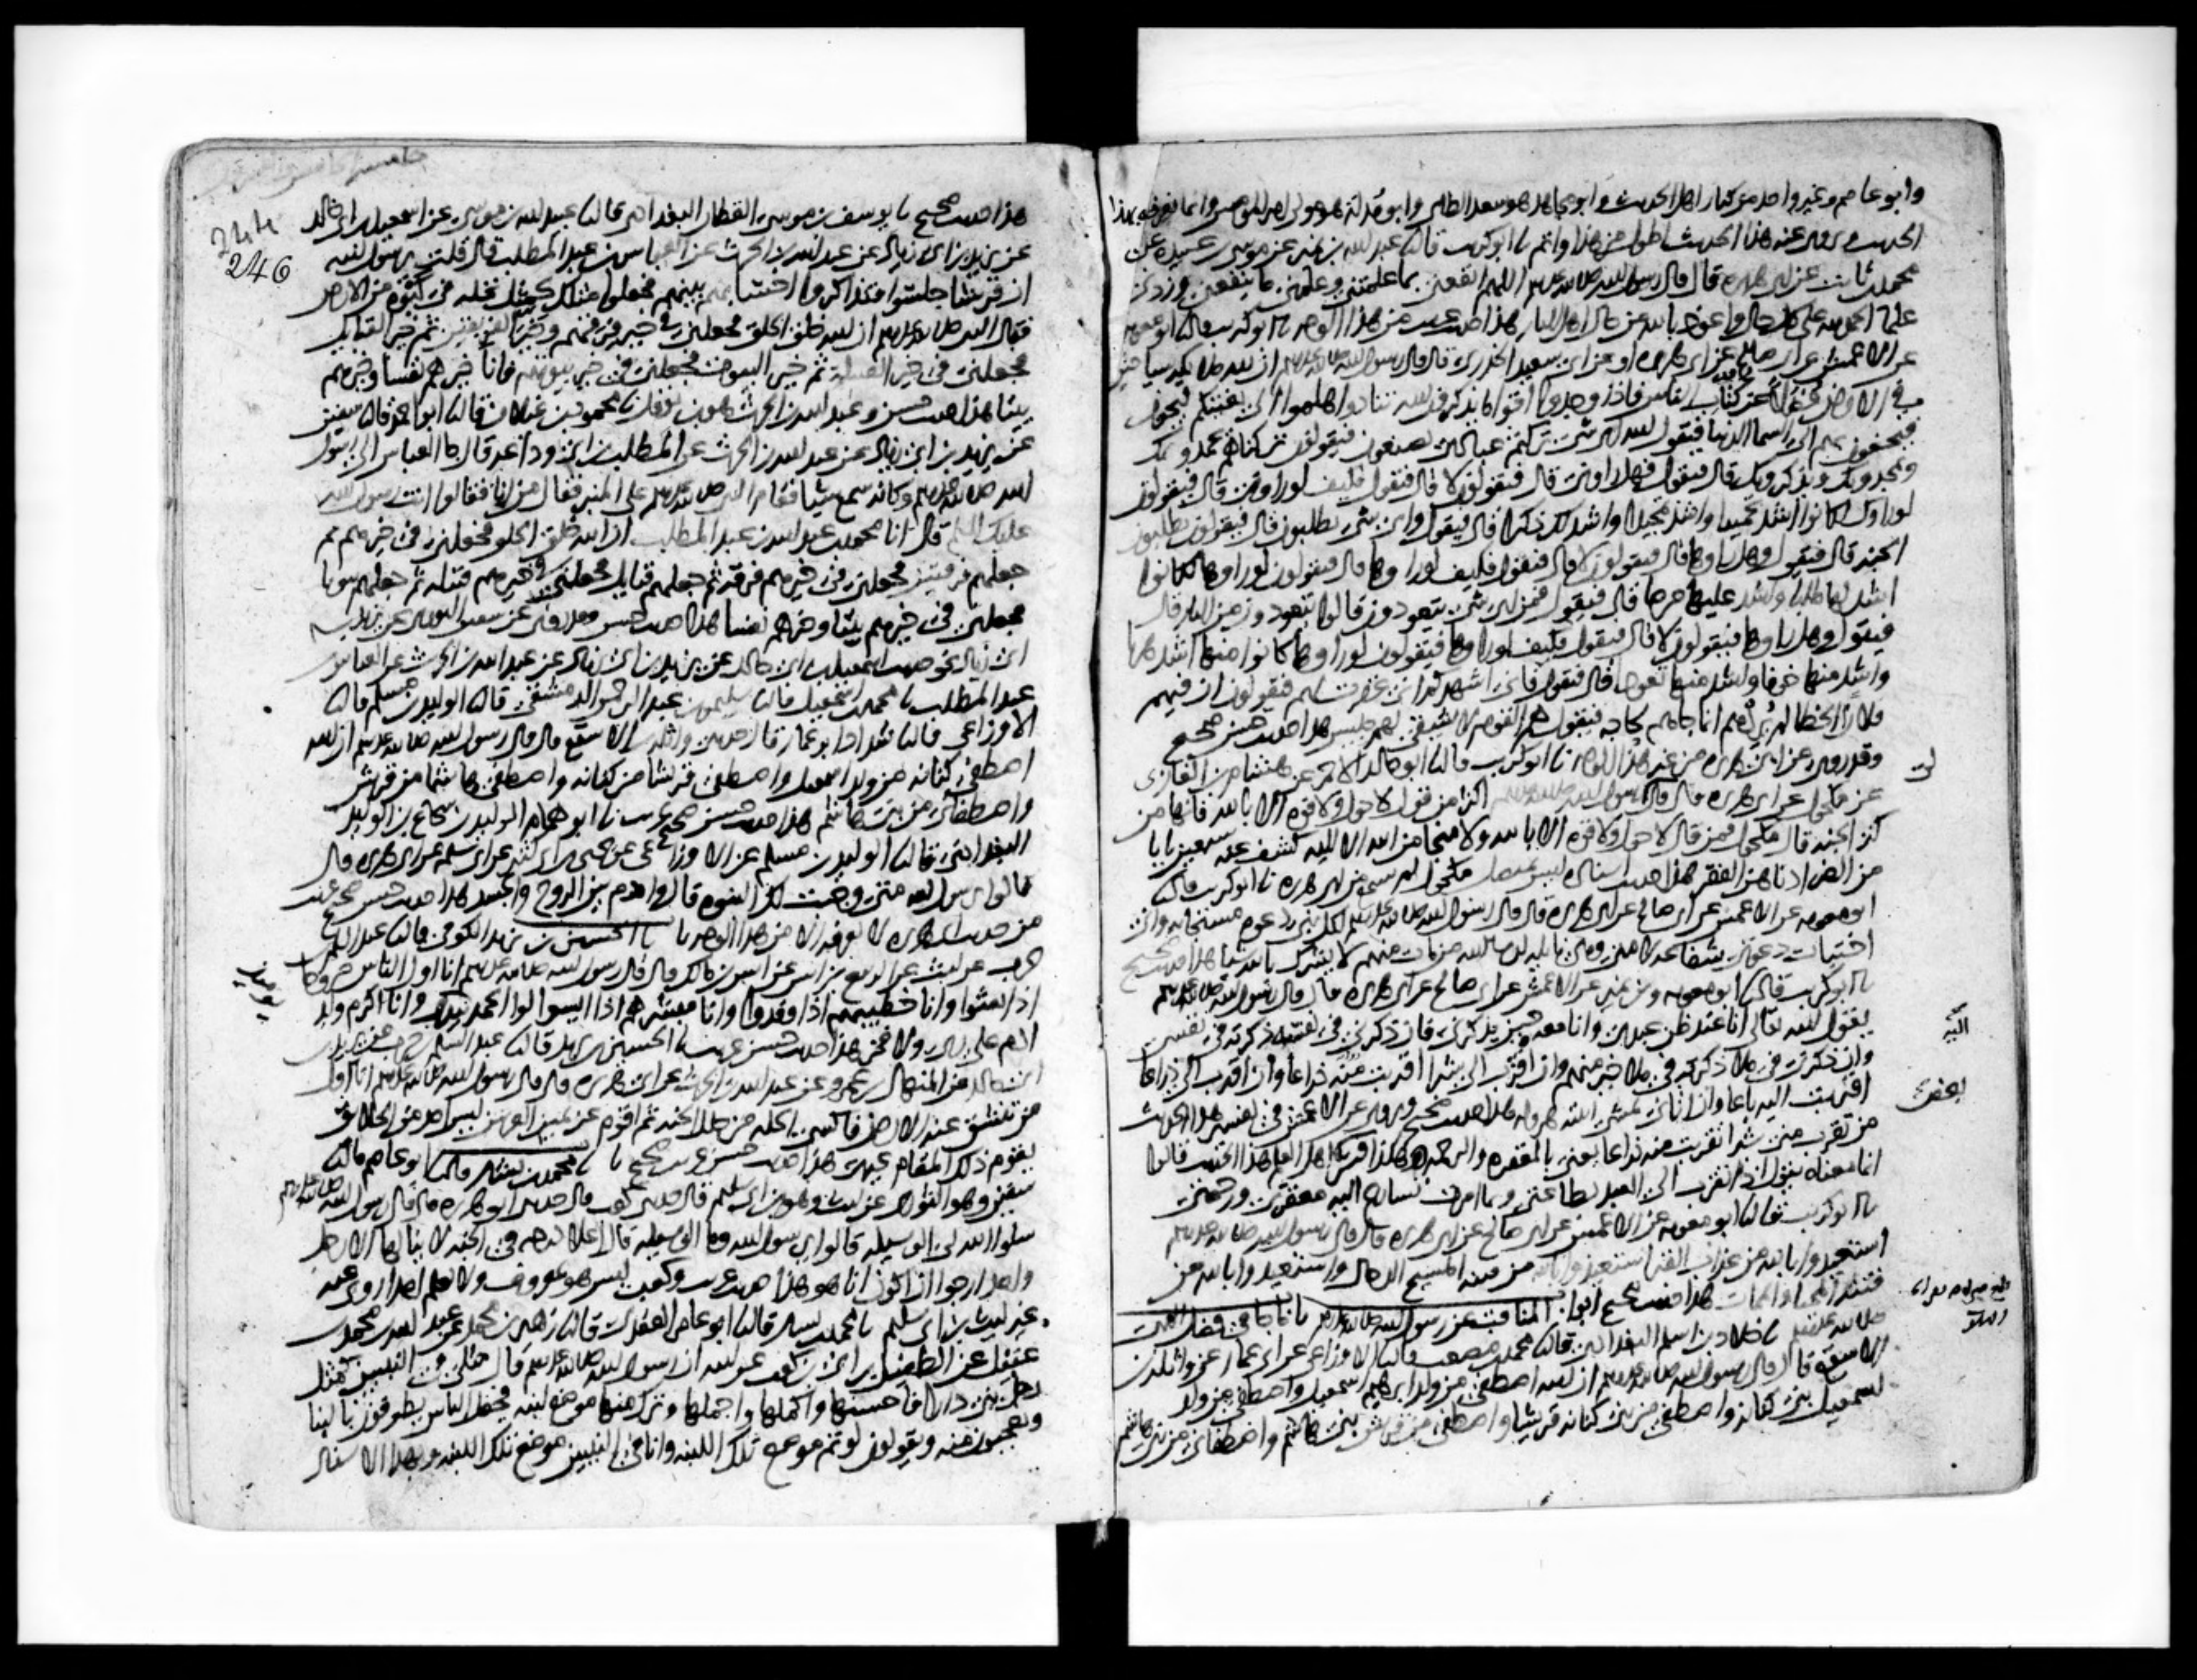 وابو عاصم وغير واحد من كبار اهل الحديث وابو مجاهد هو سعد الطائي وابو مدلة هو مولى ام المومنين وانما نعرفه بهذا
الحديث ويروى عنه هذا الحديث اطول من هذا واتم نا ابو كريب قال نا عبد الله بن نمير عن موسى بن عبيدة عن
محمد بن ثابت عن ابي هريرة قال قال رسول الله صلى الله عليه وسلم اللهم انفعني بما علمتني وعلمني ما ينفعني وزدني
علما الحمد لله على كل حال واعوذ بالله من حال اهل النار هذا حديث غريب من هذا الوجه نا ابو كريب قال نا ابو معوية
عن الاعمش عن ابي صالح عن ابي هريرة او عن ابي سعيد الخدري قال قال رسول الله صلى الله عليه وسلم ان لله ملائكة سياحين
في الارض فضلا عن كتاب الناس فاذا وجدوا اقواما يذكرون الله تنادوا هلموا الى بغيتكم فيجيون
فيحفون بهم الى السما الدنيا فيقول الله اي شي تركتم عبادي يصنعون فيقولون تركناهم يحمدونك
ويمجدونك ويذكرونك قال فيقول فهل راوني قال فيقولون لا قال فيقول فكيف لو راوني قال فيقولون
لو راوك لكانوا اشد تحميدا واشد تمجيدا واشد لك ذكرا قال فيقول واي شي يطلبون قال فيقولون يطلبون
الجنة قال فيقول وهل راوها قال فيقولون لا قال فيقول فكيف لو راوها قال فيقولون لو راوها لكانوا
اشد لها طلبا واشد عليها حرصا قال فيقول فمن اي شي يتعوذون قالوا يتعوذون من النار قال
فيقول وهل راوها فيقولون لا قال فيقول فكيف لو راوها فيقولون لو راوها كانوا منها اشد هربا
واشد منها خوفا واشد منها تعوذا قال فيقول فاني اشهدكم اني غفرت لهم فيقولون ان فيهم
فلانا الخطا لم يردهم انما جاهم لحاجة فيقول هم القوم لا يشقى لهم جليس هذا حديث حسن صحيح
وقد روي عن ابي هريرة من غير هذا الوجه نا ابو كريب قال نا ابو خالد الاحمر عن هشام بن الغازي
عن مكحول عن ابي هريرة قال قال رسول الله صلى الله عليه وسلم اكثر من قول لا حول ولا قوة الا بالله فانها من
كنز الجنة قال مكحول فمن قال لا حول ولا قوة الا بالله ولا منجا من الله الا اليه كشف عنه سبعين بابا
من الضر ادناهن الفقر هذا حديث اسناده ليس بمتصل مكحول لم يسمع من ابي هريرة نا ابو كريب قال نا
ابو معوية عن الاعمش عن ابي صالح عن ابي هريرة قال قال رسول الله صلى الله عليه وسلم لكل نبي دعوة مستجابة واني
اختبات دعوتي شفاعة لامتي وهي نايلة ان شا الله من مات منهم لا يشرك بالله شيا هذا حديث صحيح
نا ابو كريب قال نا ابو معوية وابن نمير عن الاعمش عن ابي صالح عن ابي هريرة قال قال رسول الله صلى الله عليه وسلم
يقول الله تعالى انا عند ظن عبدي وانا معه حين يذكرني فان ذكرني في نفسه ذكرته في نفسي
وان ذكرني في ملا ذكرته في ملا خير منهم وان اقترب الي شبرا اقتربت منه ذراعا وان اقترب الي ذراعا
اقتربت اليه باعا وان اتاني يمشي اتيته هرولة هذا حديث صحيح ويروى عن الاعمش في تفسير هذا الحديث
من تقرب مني شبرا تقربت منه ذراعا يعني بالمغفرة والرحمة وهكذا فسر بعض اهل العلم هذا الحديث قالوا
انما معناه يقول اذا تقرب الي العبد بطاعتي وبما امرت تسارع اليه مغفرتي ورحمتي
نا ابو كريب قال نا ابو معوية عن الاعمش عن ابي صالح عن ابي هريرة قال قال رسول الله صلى الله عليه وسلم
استعيذوا بالله من عذاب القبر استعيذوا بالله من فتنة المسيح الدجال واستعيذوا بالله من
فتنة المحيا والممات هذا حديث صحيح ابواب المناقب عن رسول الله صلى الله عليه وسلم باب ما جا في فضل النبي
صلى الله عليه وسلم نا خلاد بن اسلم البغدادي قال نا محمد بن مصعب قال نا الاوزاعي عن ابي عمار عن واثلة بن
الاسقع قال قال رسول الله صلى الله عليه وسلم ان الله اصطفى من ولد ابرهيم اسمعيل واصطفى من ولد
اسمعيل بني كنانة واصطفى من بني كنانة قريشا واصطفى من قريش بني هاشم واصطفاني من بني هاشم
اليه
بعض
244
246
هذا حديث صحيح نا يوسف بن موسى القطان البغدادي قال نا عبيد الله بن موسى عن اسمعيل بن ابي خالد
عن يزيد بن ابي زياد عن عبد الله بن الحرث عن العباس بن عبد المطلب قال قلت يرسول الله
ان قريشا جلسوا فتذاكروا احسابهم بينهم فجعلوا مثلك كمثل نخلة في كبوة من الارض
فقال النبي صلى الله عليه وسلم ان الله خلق الخلق فجعلني في خير فرقهم وخير الفريقين ثم خير القبايل
فجعلني في خير القبيلة ثم خير البيوت فجعلني في خير بيوتهم فانا خيرهم نفسا وخيرهم
بيتا هذا حديث حسن وعبد الله بن الحرث هو ابن نوفل نا محمود بن غيلان قال نا ابو احمد قال نا سفين
عن يزيد بن ابي زياد عن عبد الله بن الحرث عن المطلب بن ابي وداعة قال جا العباس الى رسول
الله صلى الله عليه وسلم وكانه سمع شيا فقام النبي صلى الله عليه وسلم على المنبر فقال من انا فقالوا انت رسول الله
عليك السلم قال انا محمد بن عبد الله بن عبد المطلب ان الله خلق الخلق فجعلني في خيرهم ثم
جعلهم فرقتين فجعلني في خيرهم فرقة ثم جعلهم قبايل فجعلني في خيرهم قبيلة ثم جعلهم بيوتا
فجعلني في خيرهم بيتا وخيرهم نفسا هذا حديث حسن وقد روي عن سفين الثوري عن يزيد بن
ابي زياد نحو حديث اسمعيل بن ابي خالد عن يزيد بن ابي زياد عن عبد الله بن الحرث عن العباس بن
عبد المطلب نا محمد بن اسمعيل قال نا سليمن بن عبد الرحمن الدمشقي قال نا الوليد بن مسلم قال نا
الاوزاعي قال نا شداد ابو عمار قال حدثني واثلة بن الاسقع قال قال رسول الله صلى الله عليه وسلم ان الله
اصطفى كنانة من ولد اسمعيل واصطفى قريشا من كنانة واصطفى هاشما من قريش
واصطفاني من بني هاشم هذا حديث حسن صحيح غريب نا ابو همام الوليد بن شجاع بن الوليد
البغدادي قال نا الوليد بن مسلم عن الاوزاعي عن يحيى بن ابي كثير عن ابي سلمة عن ابي هريرة قال
قالوا يرسول الله متى وجبت لك النبوة قال وادم بين الروح والجسد هذا حديث حسن صحيح غريب
من حديث ابي هريرة لا نعرفه الا من هذا الوجه نا الحسين بن يزيد الكوفي قال نا عبد السلم بن
حرب عن ليث عن الربيع بن انس عن انس بن مالك قال قال رسول الله صلى الله عليه وسلم انا اول الناس خروجا
اذا بعثوا وانا خطيبهم اذا وفدوا وانا مبشرهم اذا ايسوا لوا الحمد بيدي وانا اكرم ولد
يوميذ
ادم على ربي ولا فخر هذا حديث حسن غريب نا الحسين بن يزيد قال نا عبد السلم بن حرب عن يزيد
ابي خالد عن المنهال بن عمرو عن عبد الله بن الحرث عن ابي هريرة قال قال رسول الله صلى الله عليه وسلم انا اول
من تنشق عنه الارض فاكسى الحلة من حلل الجنة ثم اقوم عن يمين العرش ليس احد من الخلايق
يقوم ذلك المقام غيري هذا حديث حسن غريب صحيح نا محمد بن بشار قال نا ابو عاصم قال نا
سفين وهو الثوري عن ليث وهو ابن ابي سليم قال حدثني كعب قال حدثني ابو هريرة قال قال رسول الله صلى الله عليه وسلم
سلوا الله لي الوسيلة قالوا يرسول الله وما الوسيلة قال اعلا درجة في الجنة لا ينالها الا رجل
واحد ارجوا ان اكون انا هو هذا حديث غريب وكعب ليس هو بمعروف ولا نعلم احدا روى عنه
غير ليث بن ابي سليم نا محمد بن بشار قال نا ابو عامر العقدي قال نا زهير بن محمد عن عبد الله بن محمد بن
عقيل عن الطفيل بن ابي بن كعب عن ابيه ان رسول الله صلى الله عليه وسلم قال مثلي في النبيين كمثل
رجل بنى دارا فاحسنها واكملها واجملها وترك منها موضع لبنة فجعل الناس يطوفون بالبنا
ويعجبون منه ويقولون لو تم موضع تلك اللبنة وانا في النبيين موضع تلك اللبنة وبهذا الاسناد